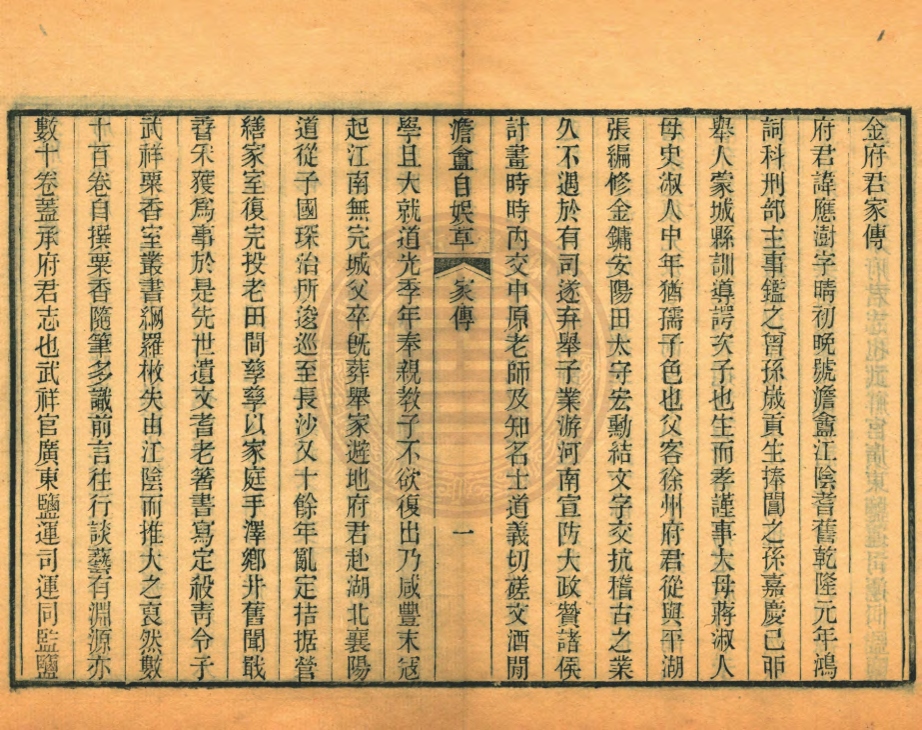 金府君家傳
府君諱應澍字晴初晚號澹盦江陰耆舊乾隆元年鴻
詞科刑部主事鑑之曾孫歲貢生捧閶之孫嘉慶己卯
舉人蒙城縣訓導諤次子也生而孝謹事大母蔣淑人
母史淑人中年猶孺子色也父客徐州府君從與平湖
張編修金鏞安陽田太守宏勳結文字交抗稽古之業
久不遇於有司遂弃舉子業游河南宣防大政贊諸侯
計畫時時內交中原老師及知名士道義切磋文酒閒
澹盦自娛草 家傳 一
學且大就道光季年奉親教子不欲復出乃咸豐末寇
起江南無完城父卒旣葬舉家避地府君赴湖北襄陽
道從子國琛治所逡巡至長沙又十餘年亂定拮据營
繕家室復完投老田間孳孳以家庭手澤鄉井舊聞戢
孴罙獲爲事於是先世遺文耆老箸書寫定殺靑令子
武祥粟香室叢書網羅散失由江陰而推大之裒然數
十百卷自撰粟香隨筆多識前言往行談藝有淵源亦
數十卷蓋承府君志也武祥官廣東鹽運司運同監鹽